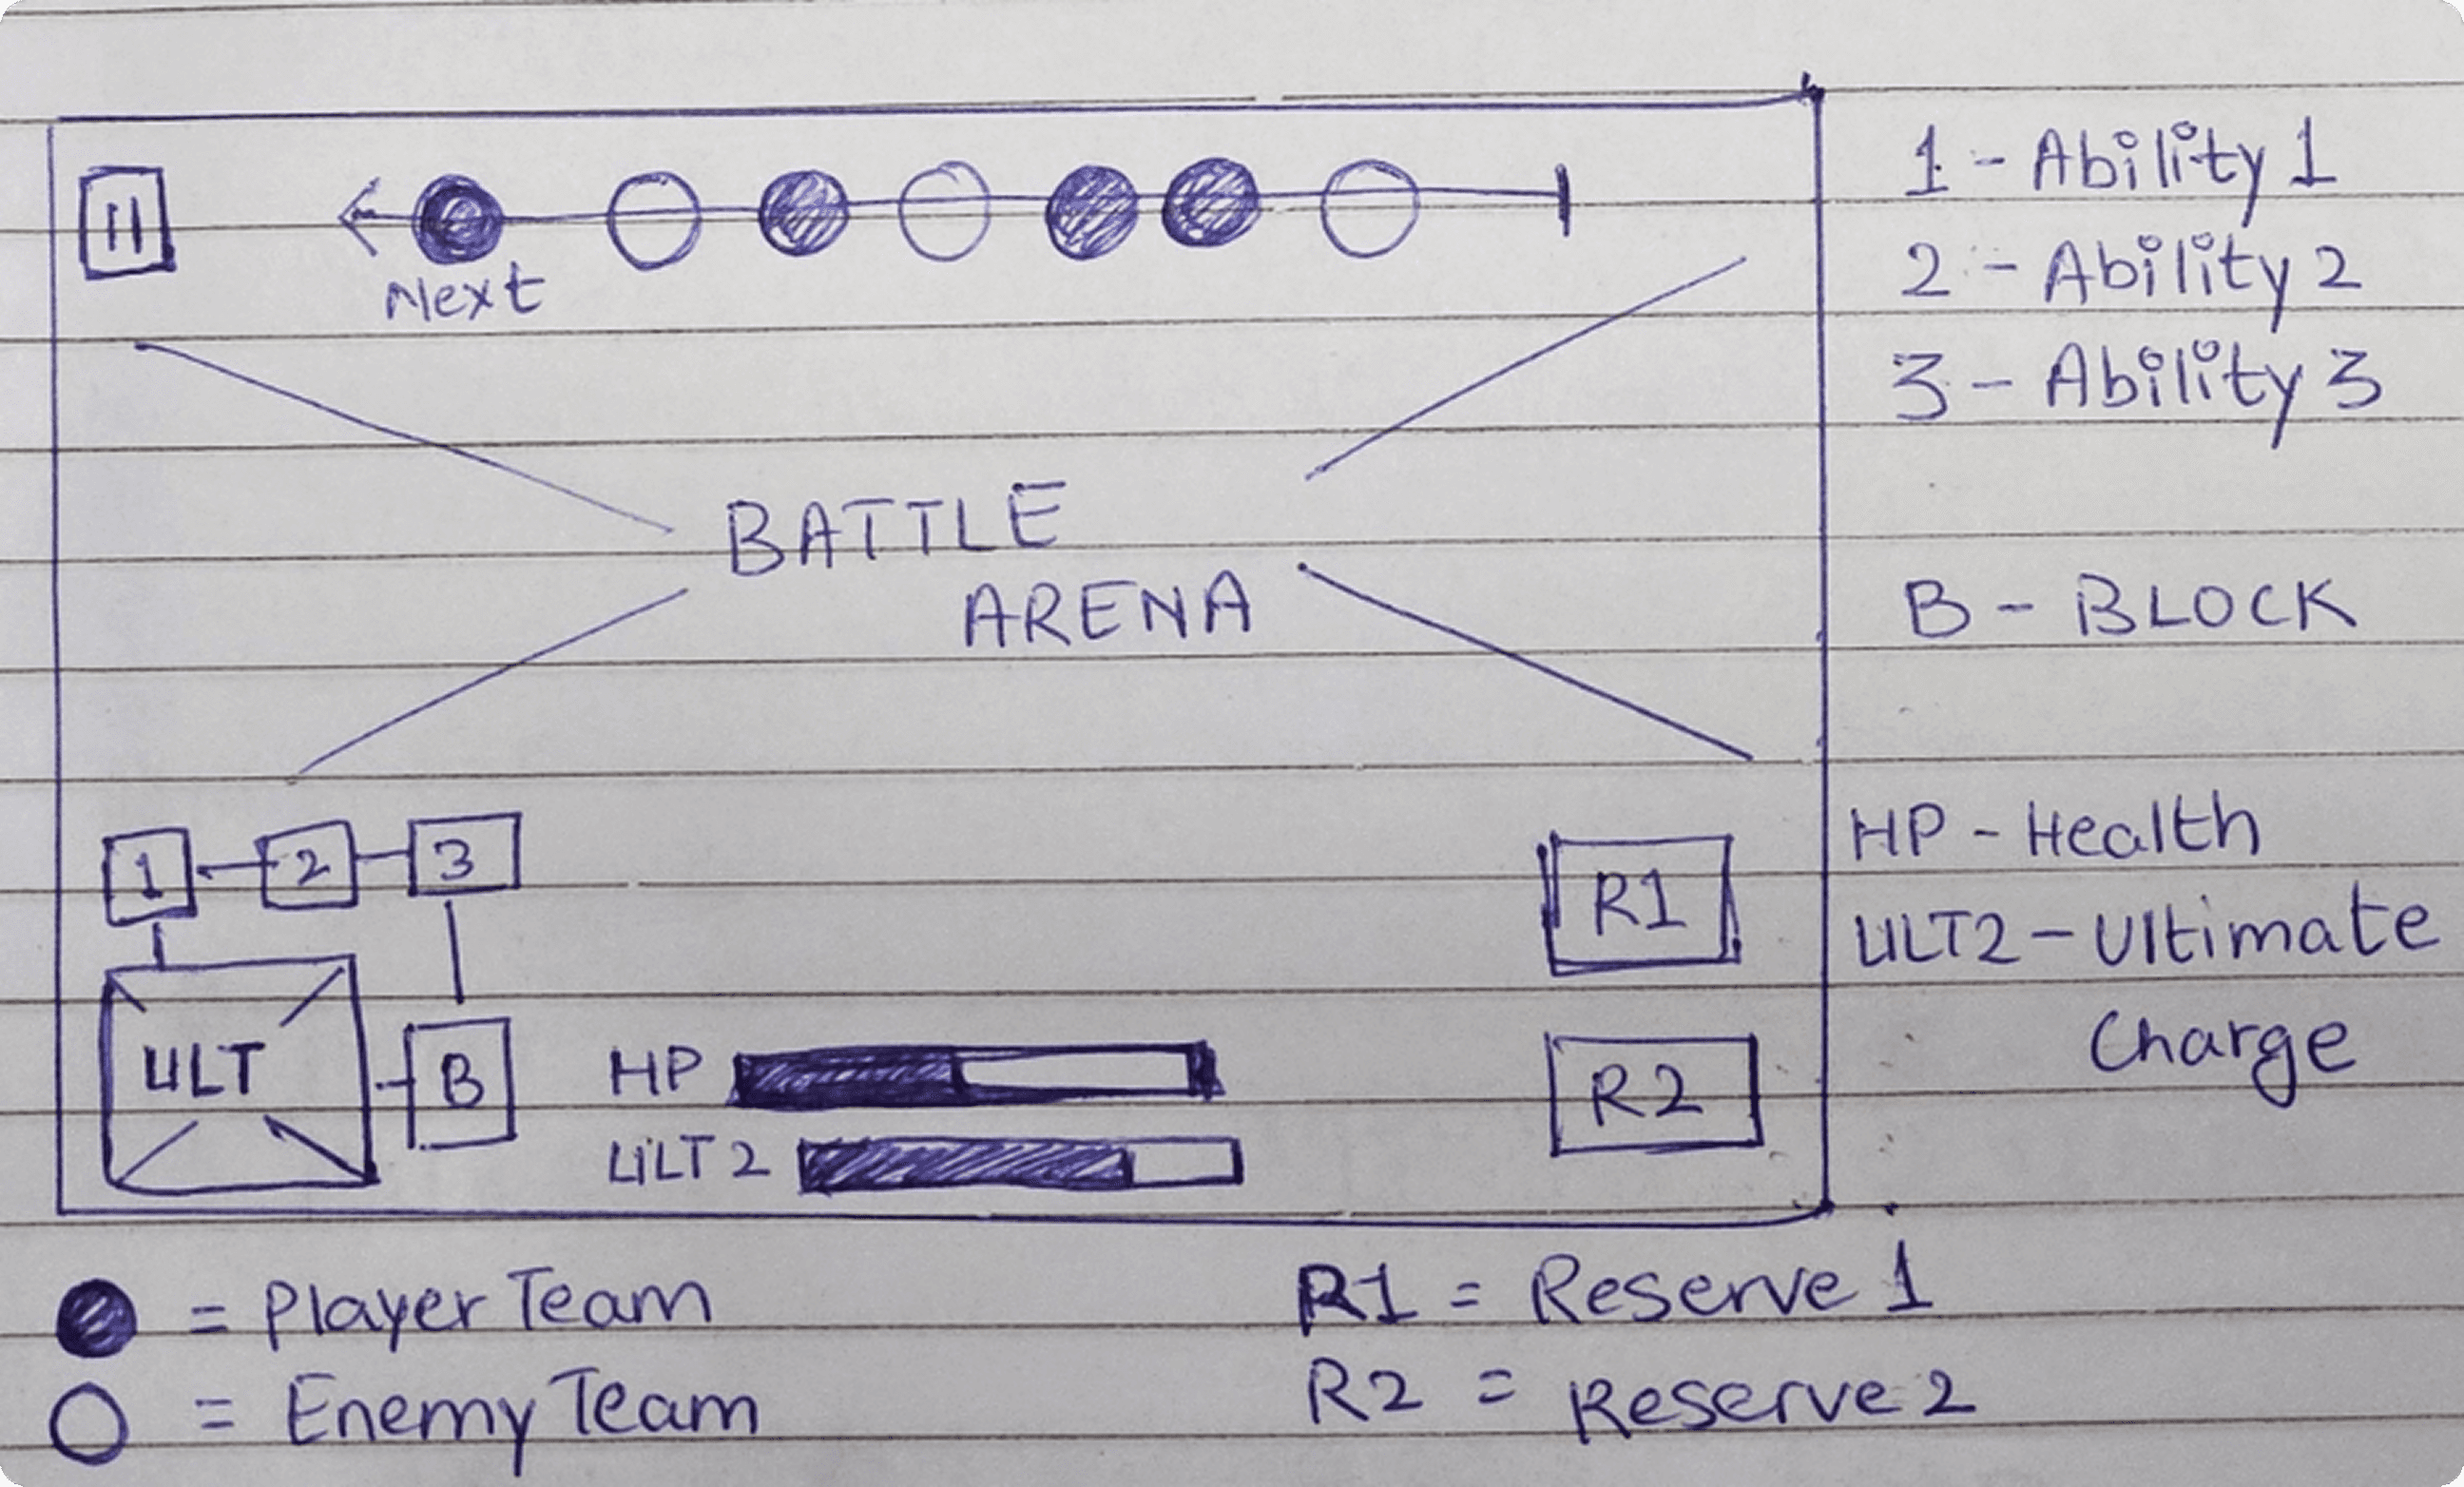 Next
BATTLE
ARENA
1
2
3
ULT
B
HP
ULT2
R1
R2
1 - Ability 1
2 - Ability 2
3 - Ability 3
B - BLOCK
HP - Health
ULT2 - Ultimate
Charge
= Player Team
= Enemy Team
R1 = Reserve 1
R2 = Reserve 2